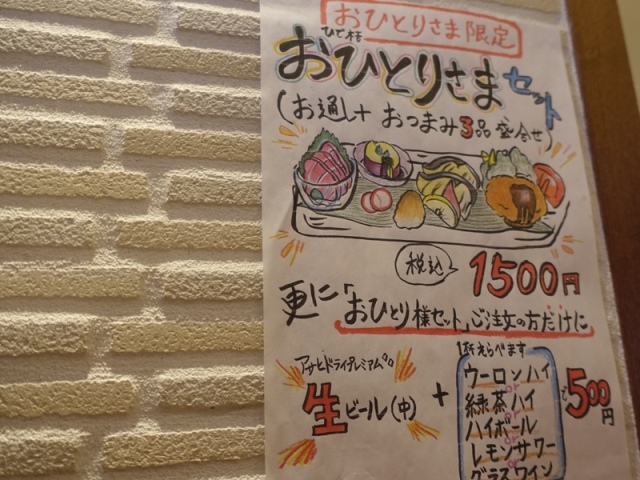 おひとりさま限定
ひで捀
おひとりさまセット
(お通し+おつまみ3品盛合せ)
税込
1500円
更に「おひとり様セット」ご注文の方だけに
アサヒドライプレミアム
生ビール(中)
+
1杯えらべます
ウーロンハイ
or
緑茶ハイ
or
ハイボール
or
レモンサワー
or
グラスワイン
で500円